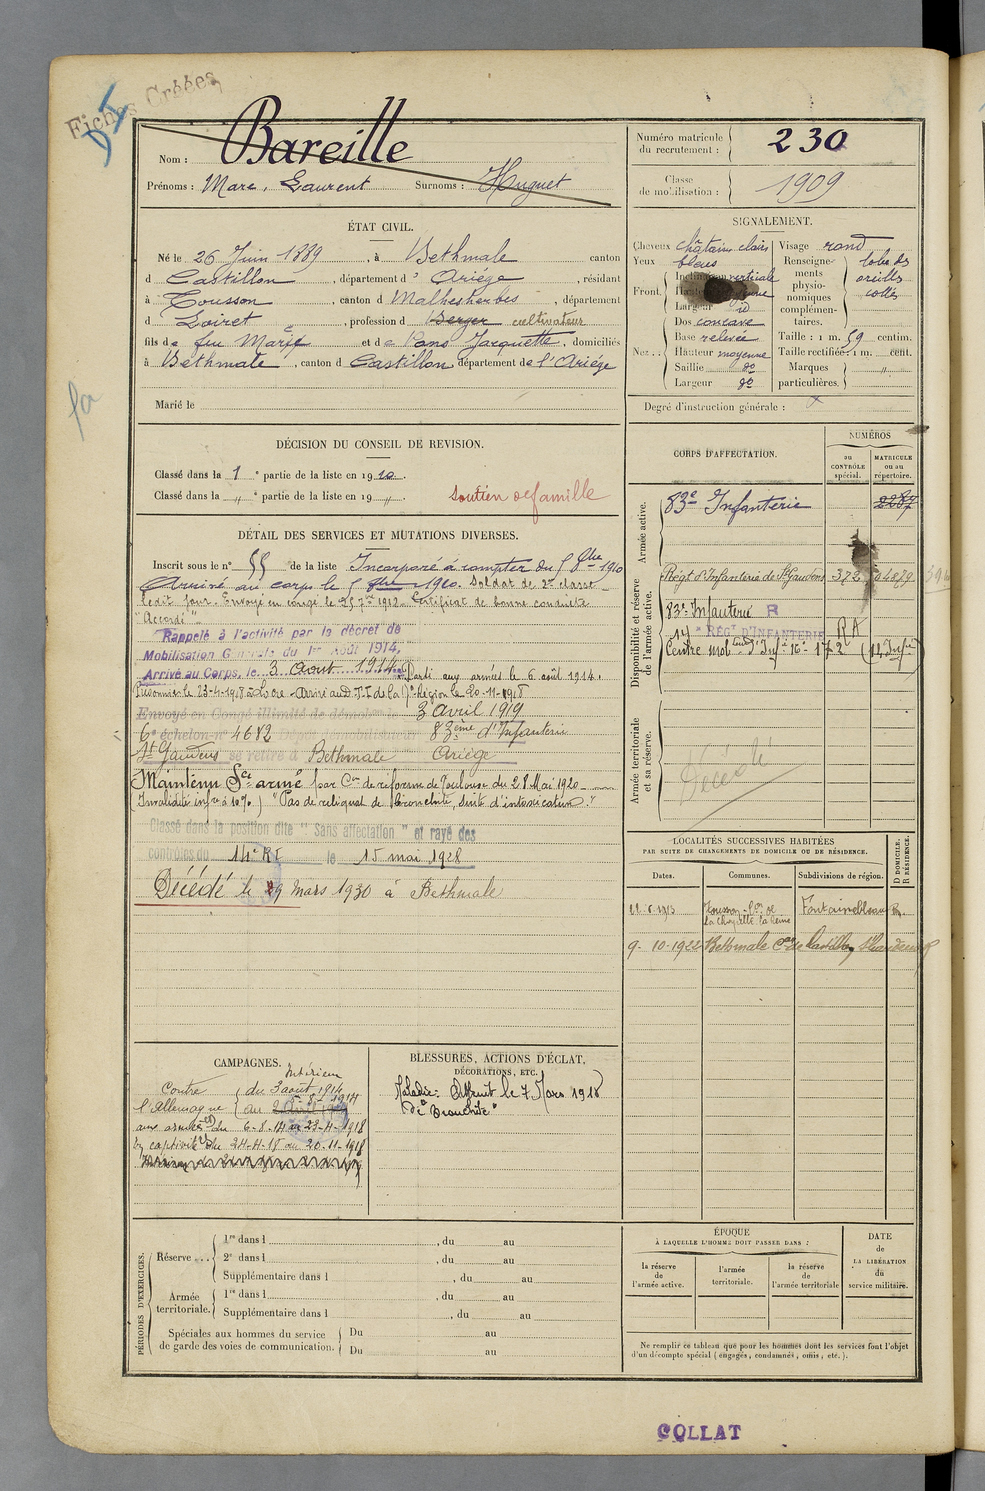 Fiches Créées
Nom : Bareille
Prénoms : Marc, Laurent Surnoms : Huguet
Numéro matricule
du recrutement : 230
Classe
de mobilisation : 1909
ÉTAT CIVIL.
Né le 26 Juin 1889, à Bethmale canton
d Castillon, département d' Ariège, résidant
à Tousson, canton d Malhesherbes, département
d Loiret, profession d Berger cultivateur
fils de feu Marie et de Pons Jacquette, domiciliés
à Bethmale, canton d Castillon département de l'Ariège
Marié le
SIGNALEMENT.
Cheveux châtain clair
Yeux bleus
Front. Inclinaison verticale
Hauteur moyenne
Largeur id
Nez... Dos concave
Base relevée
Hauteur moyenne
Saillie do
Largeur do
Visage rond
Renseignements physionomiques complémentaires. lobes des oreilles collés
Taille : 1 m. 59 centim.
Taille rectifiée : 1 m. cent.
Marques particulières. "
Degré d'instruction générale :
DÉCISION DU CONSEIL DE REVISION.
Classé dans la 1e partie de la liste en 1910.
Classé dans la " e partie de la liste en 19 ".
Soutien de famille
DÉTAIL DES SERVICES ET MUTATIONS DIVERSES.
Inscrit sous le n° 55 de la liste Incorporé à compter du 5 8bre 1910
Arrivé au corps le 5 8bre 1910. Soldat de 2e classe
ledit jour. Envoyé en congé le 25 7bre 1912. Certificat de bonne conduite
"Accordé"
Rappelé à l'activité par le décret de
Mobilisation Générale du 1er Août 1914,
Arrivé au Corps, le 3 Aout 1914. Parti aux armées le 6 août 1914.
Prisonnier le 23-4-1918 Arrivé au D.T.I de la Région le 20-11-1918
Envoyé en Congé illimité de démob 3 Avril 1919
6e échelon n° 4682 Dépôt démobilisateur 83ème d'Infanterie
St Gaudens se retire à Bethmale Ariège
Maintenu Sce armé par Con de réforme de Toulouse du 28 Mai 1920
Invalidité infre à 10%) "Pas de reliquat de bronchite, suite d'intoxication."
Classé dans la position dite "Sans affectation" et rayé des
contrôles du 14e RI le 15 mai 1928
Décédé le 29 mars 1930 à Bethmale
CORPS D'AFFECTATION.
NUMÉROS
au
CONTRÔLE
spécial.
MATRICULE
ou au
répertoire.
Armée active.
83e Infanterie 2287
Disponibilité et réserve
de l'armée active.
Régt d'Infanterie de St Gaudens 372 04879
83e Infanterie R
14e RÉGt D'INFANTERIE RA
Centre mob d'Infie 16e 172
Armée territoriale
et sa réserve.
Décédé
LOCALITÉS SUCCESSIVES HABITÉES
PAR SUITE DE CHANGEMENTS DE DOMICILE OU DE RÉSIDENCE.
Dates. Communes. Subdivisions de région. D DOMICILE. R RÉSIDENCE.
22.6.1913 Tousson - Con de la Chapelle la Reine Fontainebleau R.
9-10-1922 Bethmale Con de Castillon St Gaudens R
CAMPAGNES.
Intérieur
Contre du 3 aout 1914
l'Allemagne au 5-8-1914
aux armées du 6-8-14 au 23-4-1918
En captivité du 24-4-18 au 20-11-1918
BLESSURES, ACTIONS D'ÉCLAT,
DÉCORATIONS, ETC.
Maladie: Détruit le 7 Mars 1918
de "Bronchite"
PÉRIODES D'EXERCICES.
Réserve...
1re dans l , du au
2e dans l , du au
Supplémentaire dans l , du au
Armée
territoriale.
1re dans l , du au
Supplémentaire dans l , du au
Spéciales aux hommes du service
de garde des voies de communication.
Du au
Du au
ÉPOQUE
À LAQUELLE L'HOMME DOIT PASSER DANS :
la réserve
de
l'armée active.
l'armée
territoriale.
la réserve
de
l'armée territoriale
DATE
de
LA LIBÉRATION
du
service militaire.
Ne remplir ce tableau que pour les hommes dont les services font l'objet
d'un décompte spécial (engagés, condamnés, omis, etc.).
COLLAT